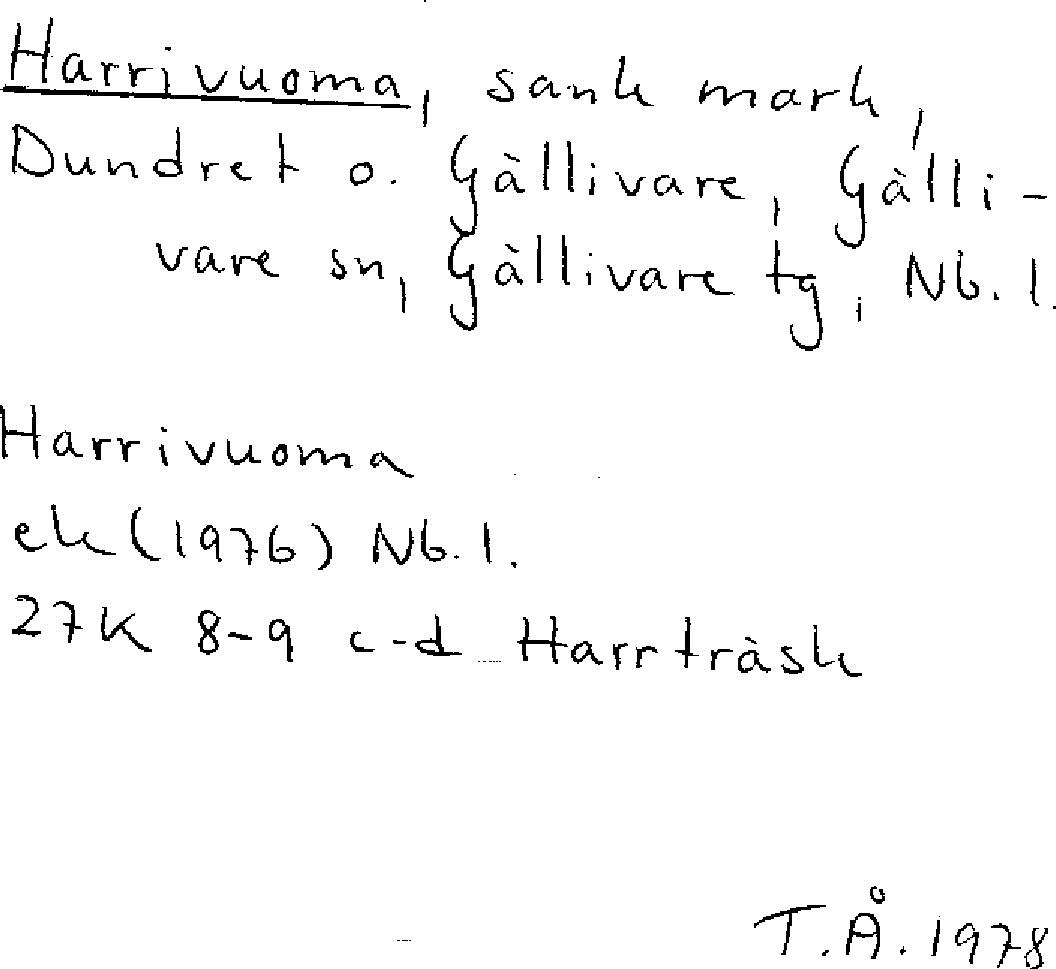 Harrivuoma, sank mark,
Dundret o. Gällivare, Gälli-
vare sn, Gällivare tg, Nb. l.
Harrivuoma
ek (1976) Nb. l.
27K 8-9 c-d Harrträsk
T.Å. 1978